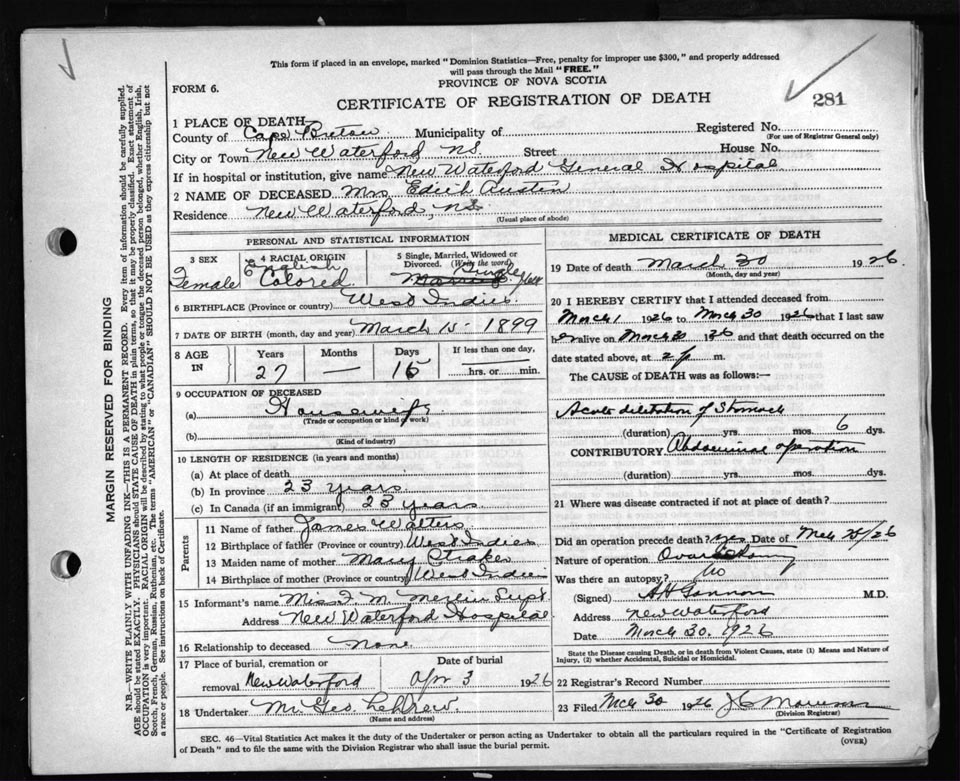 This form if placed in an envelope, marked "Dominion Statistics—Free, penalty for improper use $300," and properly addressed
will pass through the Mail "FREE."
FORM 6.
PROVINCE OF NOVA SCOTIA
CERTIFICATE OF REGISTRATION OF DEATH
281
1 PLACE OF DEATH
County of Cape Breton Municipality of
Registered No.
(For use of Registrar General only)
City or Town New Waterford NS Street House No.
If in hospital or institution, give name New Waterford General Hospital
2 NAME OF DECEASED Mrs Edith Austin
Residence New Waterford, NS
(Usual place of abode)
PERSONAL AND STATISTICAL INFORMATION
3 SEX
Female
4 RACIAL ORIGIN
English
Colored
5 Single, Married, Widowed or
Divorced. (Write the word)
Single
6 BIRTHPLACE (Province or country) West Indies
7 DATE OF BIRTH (month, day and year) March 15 - 1899
8 AGE IN
Years Months Days If less than one day,
27 — 15 hrs. or min.
9 OCCUPATION OF DECEASED
(a) Housewife
(Trade or occupation or kind of work)
(b)
(Kind of industry)
10 LENGTH OF RESIDENCE (in years and months)
(a) At place of death
(b) In province 23 years
(c) In Canada (if an immigrant) 23 years
Parents
11 Name of father James Walters
12 Birthplace of father (Province or country) West Indies
13 Maiden name of mother Mary
14 Birthplace of mother (Province or country) West Indies
15 Informant's name Miss F. M. Merlin Supt.
Address New Waterford Hospital
16 Relationship to deceased None
17 Place of burial, cremation or
removal New Waterford
Date of burial
Apr 3 1926
18 Undertaker Mr Geo.
(Name and address)
MEDICAL CERTIFICATE OF DEATH
19 Date of death March 30 1926.
(Month, day and year)
20 I HEREBY CERTIFY that I attended deceased from
March 1 1926 to March 30 1926 that I last saw
her alive on March 30 1926 and that death occurred on the
date stated above, at 2 p m.
The CAUSE of DEATH was as follows:—
Acute dilitation of Stomach
(duration) yrs. mos. 6 dys.
CONTRIBUTORY Abdominal operation
(duration) yrs. mos. dys.
21 Where was disease contracted if not at place of death?
Did an operation precede death? yes Date of Mch 25/26
Nature of operation
Was there an autopsy? No
(Signed) M.D.
Address New Waterford
Date March 30, 1926
State the Disease causing Death, or in death from Violent Causes, state (1) Means and Nature of
Injury, (2) whether Accidental, Suicidal or Homicidal.
22 Registrar's Record Number
23 Filed Mch 30 1926
(Division Registrar)
SEC. 46—Vital Statistics Act makes it the duty of the Undertaker or person acting as Undertaker to obtain all the particulars required in the "Certificate of Registration
of Death" and to file the same with the Division Registrar who shall issue the burial permit.
(OVER)
MARGIN RESERVED FOR BINDING
N.B.—WRITE PLAINLY WITH UNFADING INK—THIS IS A PERMANENT RECORD. Every item of information should be carefully supplied.
AGE should be stated EXACTLY. PHYSICIANS should STATE CAUSE OF DEATH in plain terms, so that it may be properly classified. Exact statement of
OCCUPATION is very important. RACIAL ORIGIN will be described by stating to what people or tongue the deceased person belonged, whether English, Irish,
Scotch, French, German, Russian, Ruthenian, etc. The terms "AMERICAN" or "CANADIAN" SHOULD NOT BE USED as they express citizenship but not
a race or people. See instructions on back of Certificate.